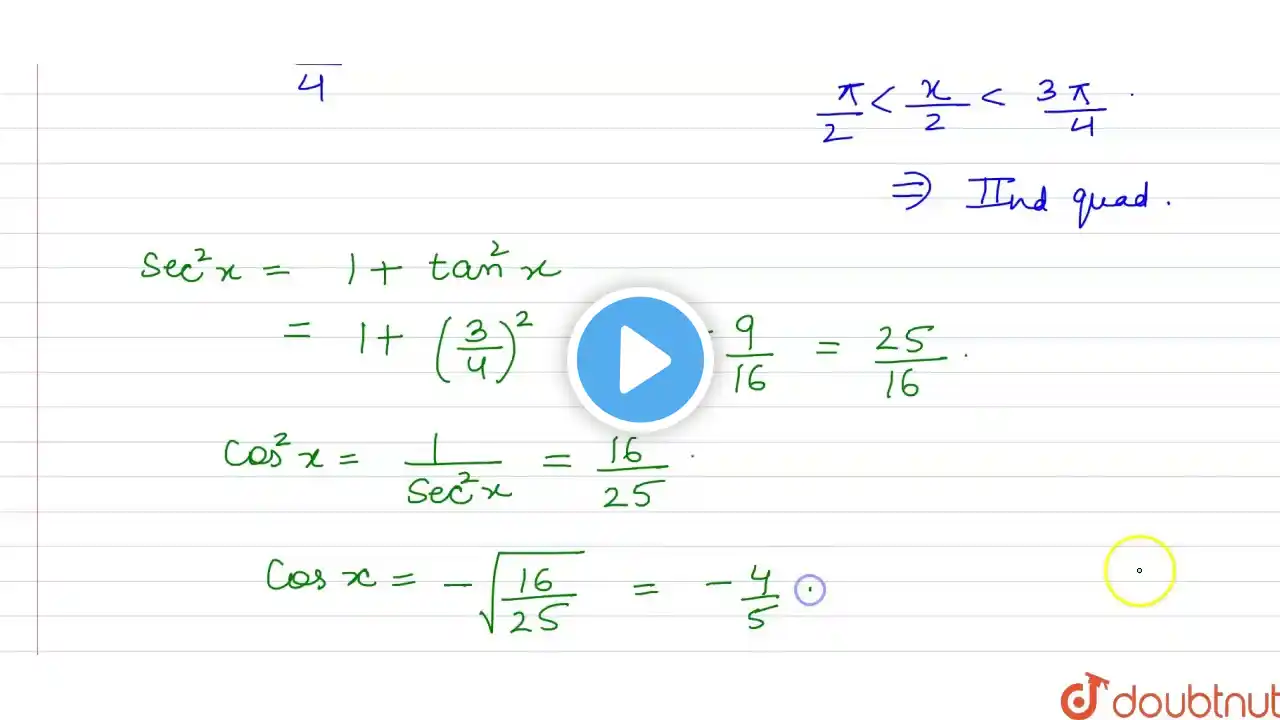 4
π/2 < x/2 < 3π/4 .
⇒ IInd quad.
sec²x = 1 + tan²x
= 1 + (3/4)² 9/16 = 25/16 .
Cos²x = 1/Sec²x = 16/25 .
Cos x = -√(16/25) = -4/5 .
doubtnut